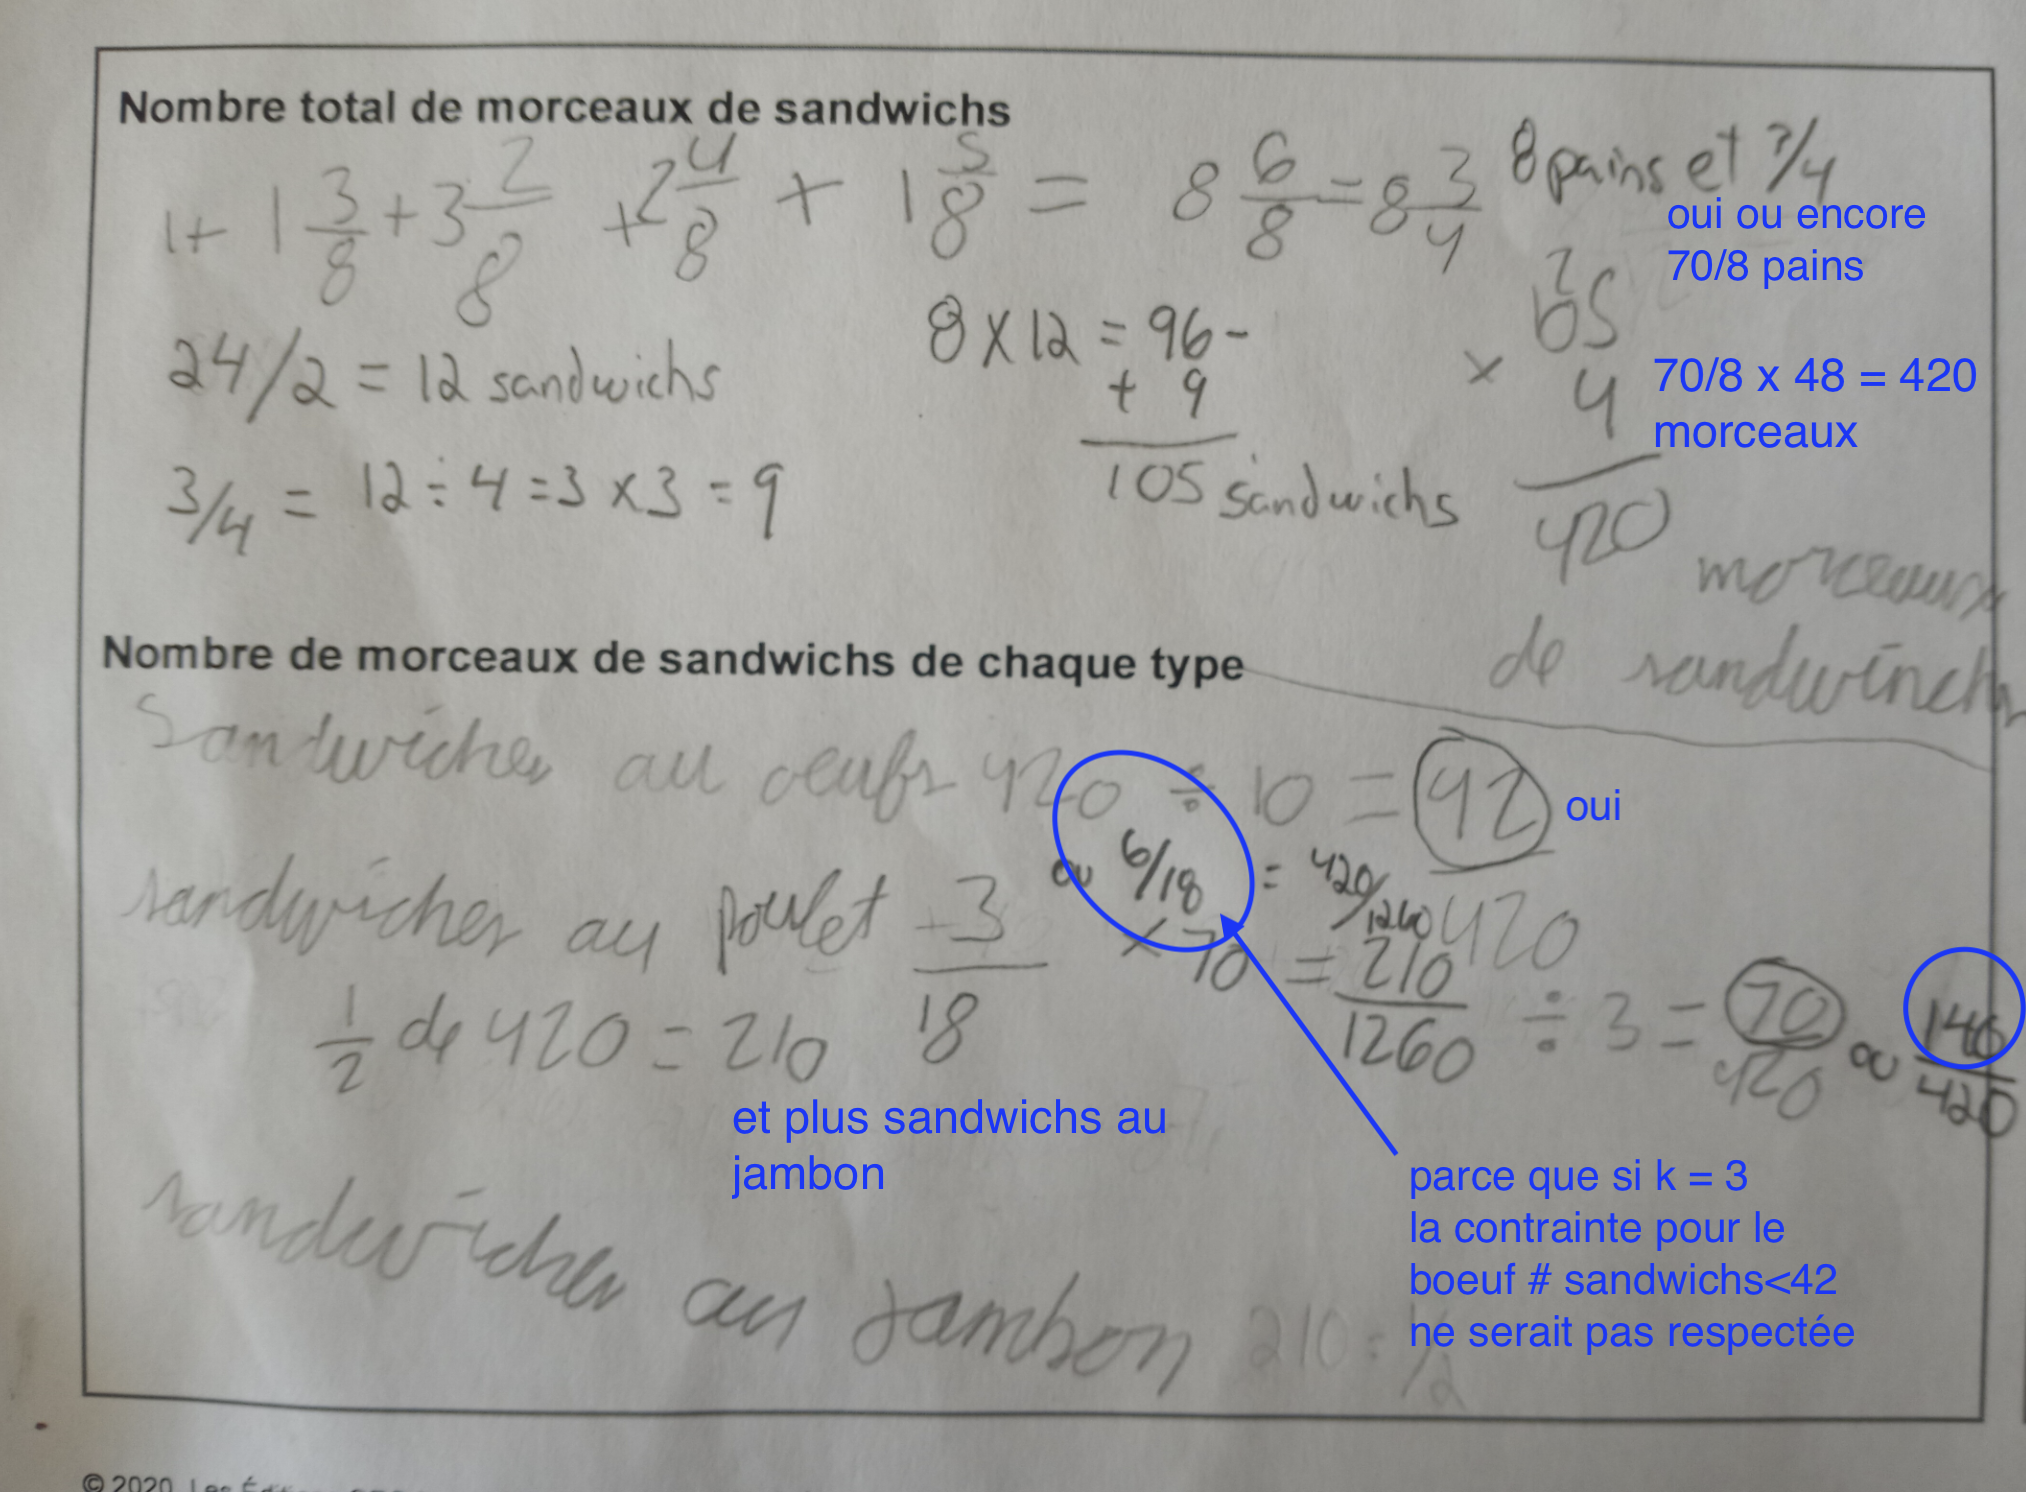 Nombre total de morceaux de sandwichs
1 + 1 3/8 + 3 2/8 + 2 4/8 + 1 5/8 = 8 6/8 = 8 3/4 8 pains et 3/4
oui ou encore
70/8 pains
24/2 = 12 sandwichs
8 x 12 = 96
+ 9
105 sandwichs
3/4 = 12 ÷ 4 = 3 x 3 = 9
2
105
x 4
420
morceaux
de sandwinchs
70/8 x 48 = 420
morceaux
Nombre de morceaux de sandwichs de chaque type
Sandwiches au oeufs 420 ÷ 10 = 42 oui
sandwiches au poulet 3/18 ou 6/18 = 420/1260
x 70 = 210/1260 ÷ 3 = 70/420 ou 140/420
420
1/2 de 420 = 210
et plus sandwichs au
jambon
parce que si k = 3
la contrainte pour le
boeuf # sandwichs<42
ne serait pas respectée
sandwiches au jambon 210 = 1/2
© 2020